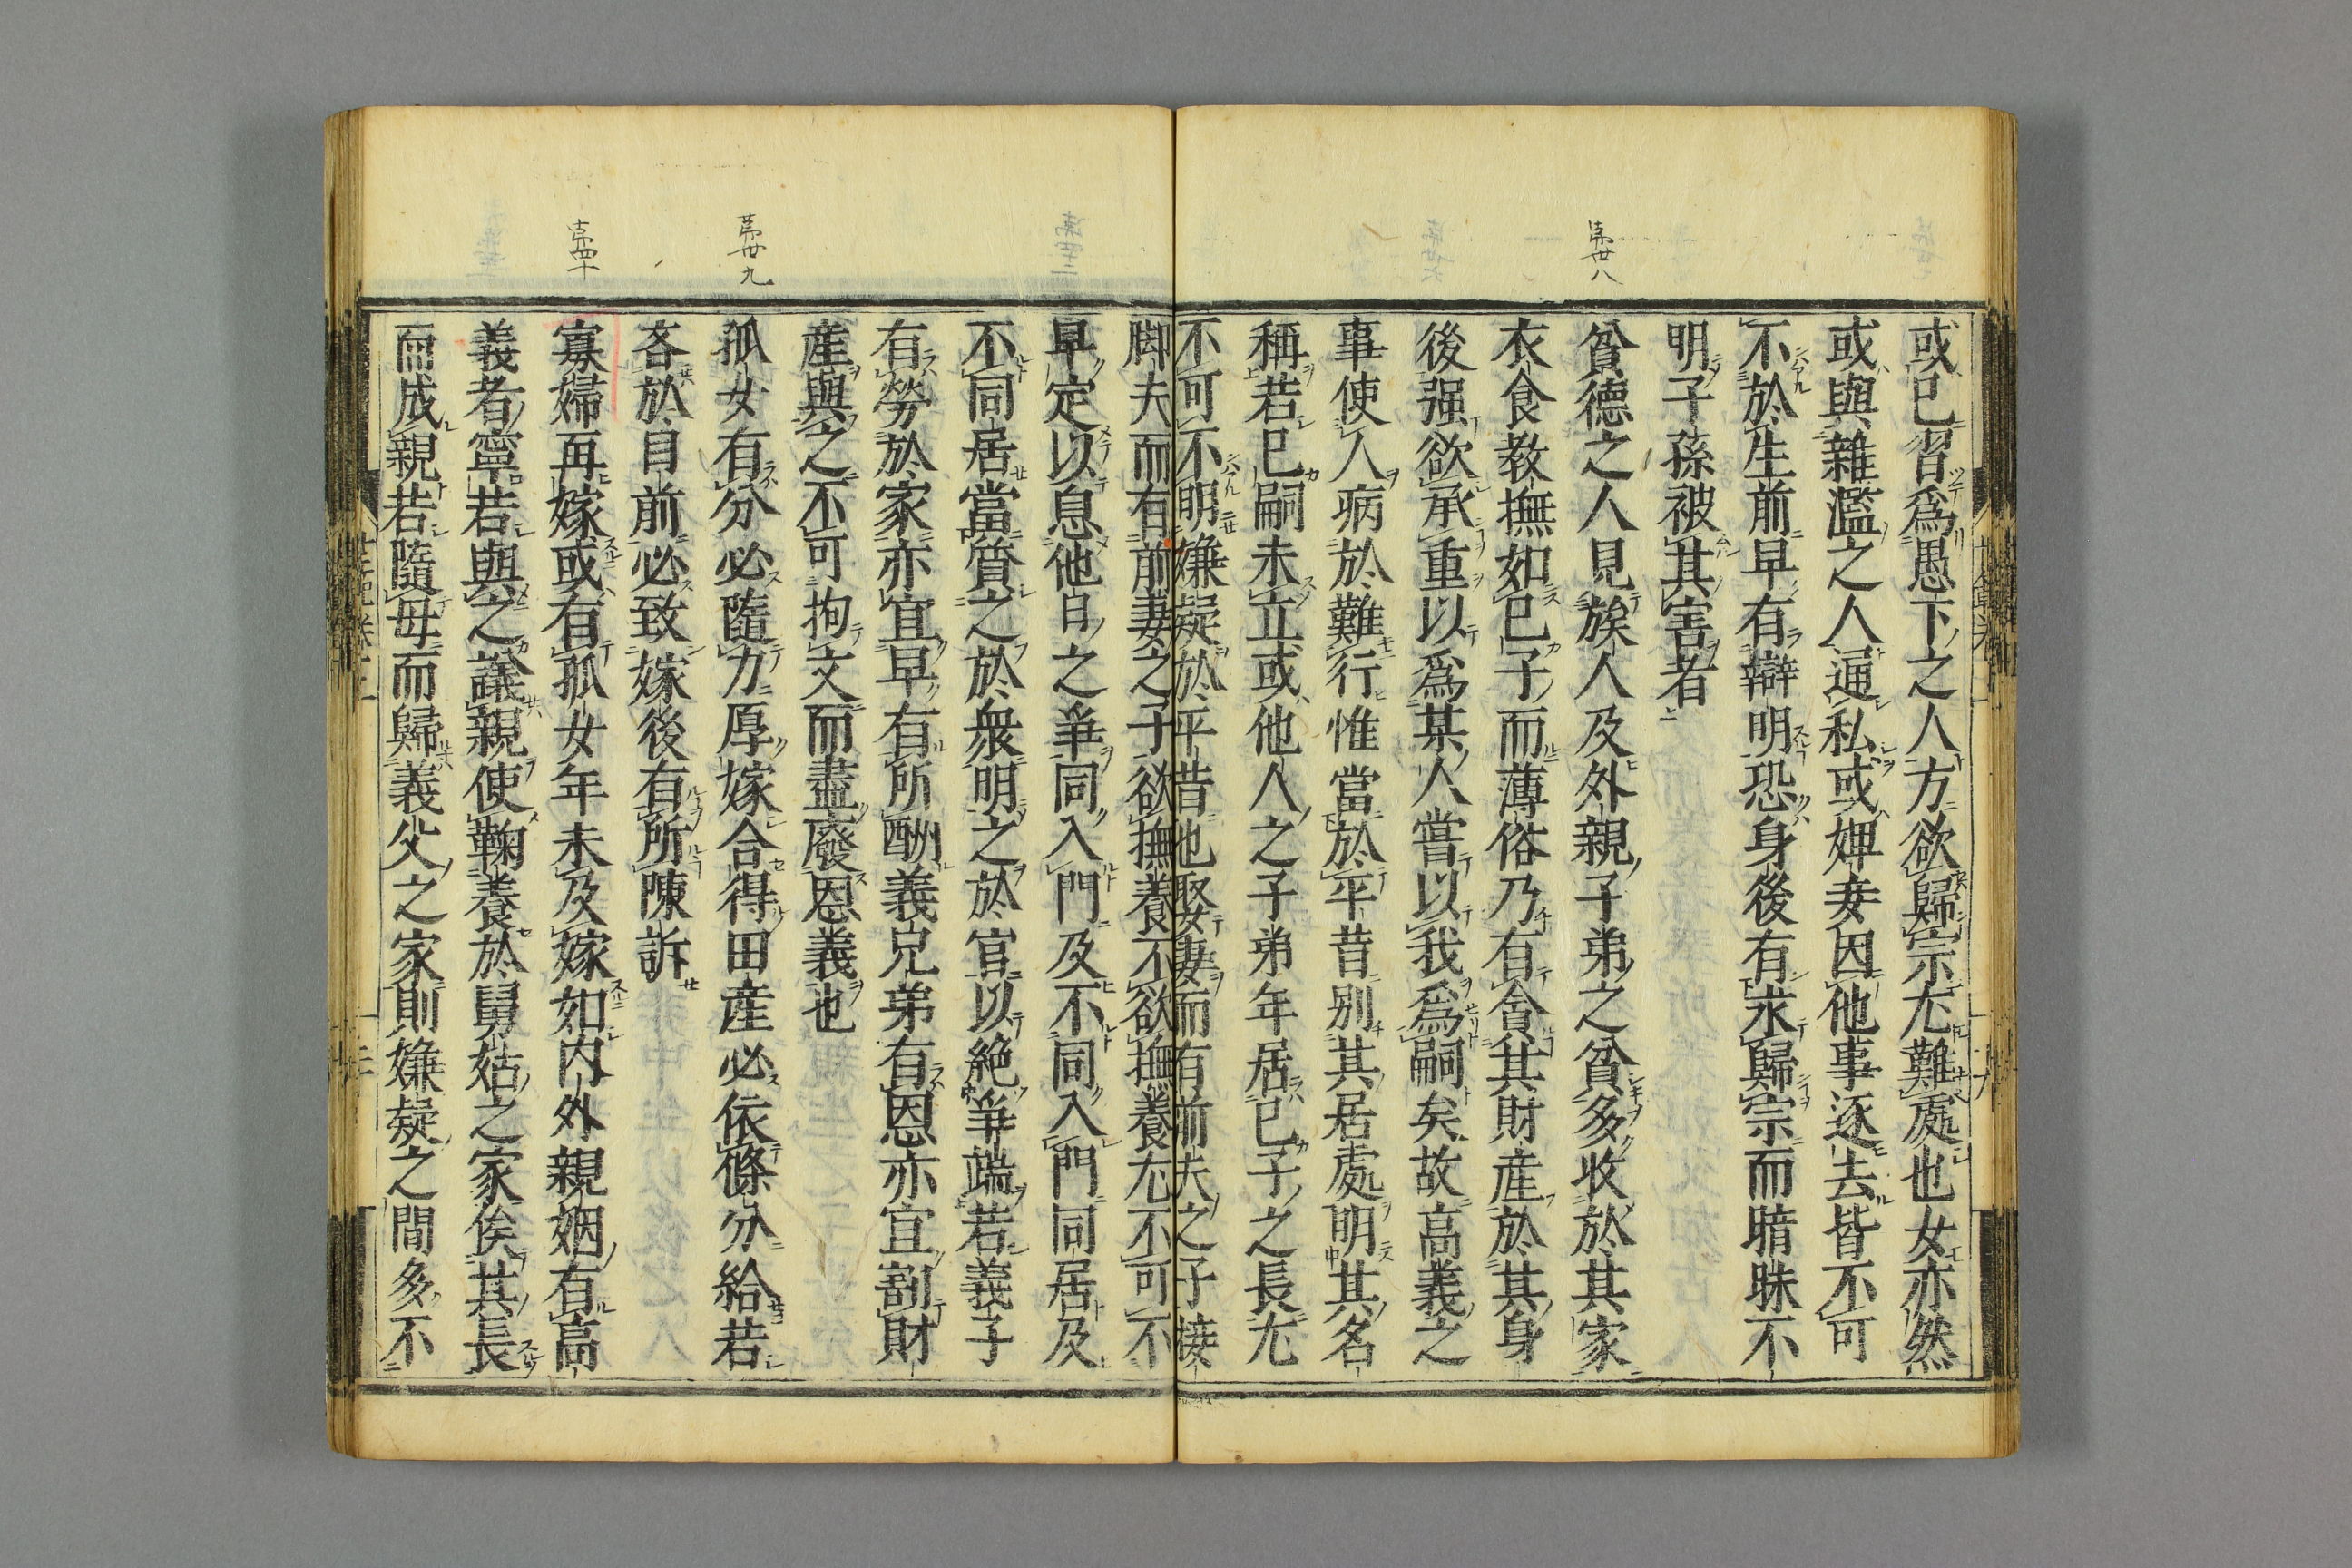 或已習爲愚下之人方欲歸宗尤難處也女亦然
或與雜濫之人通私或婢妾因他事逐去皆不可
不於生前早有辯明恐身後有求歸宗而暗昧不
明子孫被其害者
第卅八
貧德之人見族人及外親子弟之貧多收於其家
衣食教撫如已子而薄俗乃有貪其財産於其身
後强欲承重以爲某人嘗以我爲嗣矣故高義之
事使人病於難行惟當於平昔别其居處明其名
稱若已嗣未立或他人之子弟年居已子之長尤
不可不明嫌疑於平昔也娶妻而有前夫之子接
脚夫而有前妻之子欲撫養不欲撫養尤不可不
早定以息他日之爭同入門及不同入門同居及
不同居當質之於衆明之於官以絶爭端若義子
有勞於家亦宜早有所酬義兄弟有恩亦宜割財
産與之不可拘文而盡廢恩義也
第卅九
孤女有分必隨力厚嫁合得田産必依條分給若
吝於目前必致嫁後有所陳訴
第四十
寡婦再嫁或有孤女年未及嫁如内外親姻有高
義者寧若與之議親使鞠養於舅姑之家俟其長
而成親若隨母而歸義父之家則嫌疑之間多不